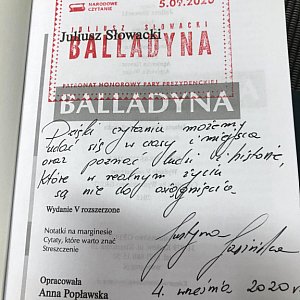 NARODOWE
CZYTANIE
5.09.2020
JULIUSZ SŁOWACKI
Juliusz Słowacki
BALLADYNA
PATRONAT HONOROWY PARY PREZYDENCKIEJ
BALLADYNA
Dzięki czytaniu możemy
udać się w czasy i miejsca
oraz poznać ludzi i historie,
które w realnym życiu
są nie do osiągnięcia.
Wydanie V rozszerzone
Notatki na marginesie
Cytaty, które warto znać
Streszczenie
Justyna
Opracowała
Anna Popławska
4. września 2020 r.